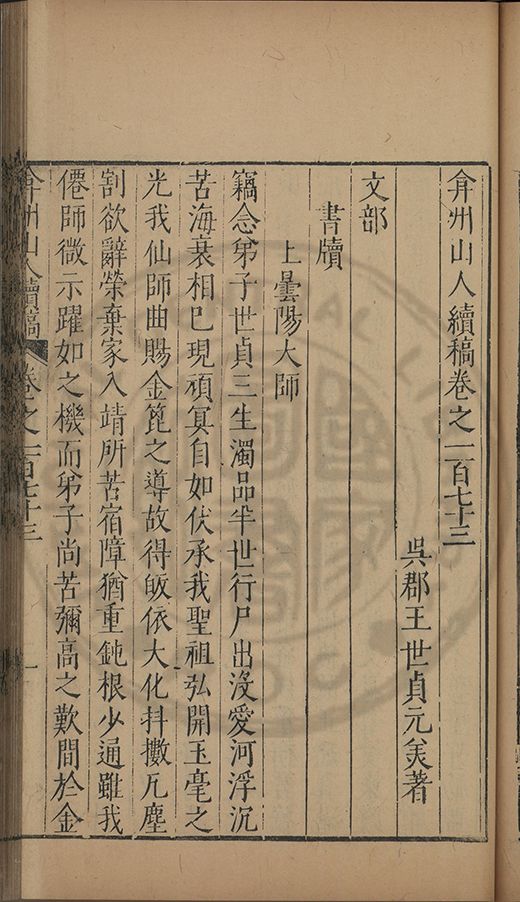 弇州山人續稿卷之一百七十三
吳郡王世貞元美著
文部
書牘
上曇陽大師
竊念弟子世貞三生濁品半世行尸出沒愛河浮沉
苦海衰相巳現頑冥自如伏承我聖祖弘開玉毫之
光我仙師曲賜金篦之導故得皈依大化抖擻凡塵
割欲辭榮棄家入靖所苦宿障猶重鈍根少通雖我
僊師微示躍如之機而弟子尚苦彌高之歎間於金
弇州山人續稿 卷之一百七十三 一